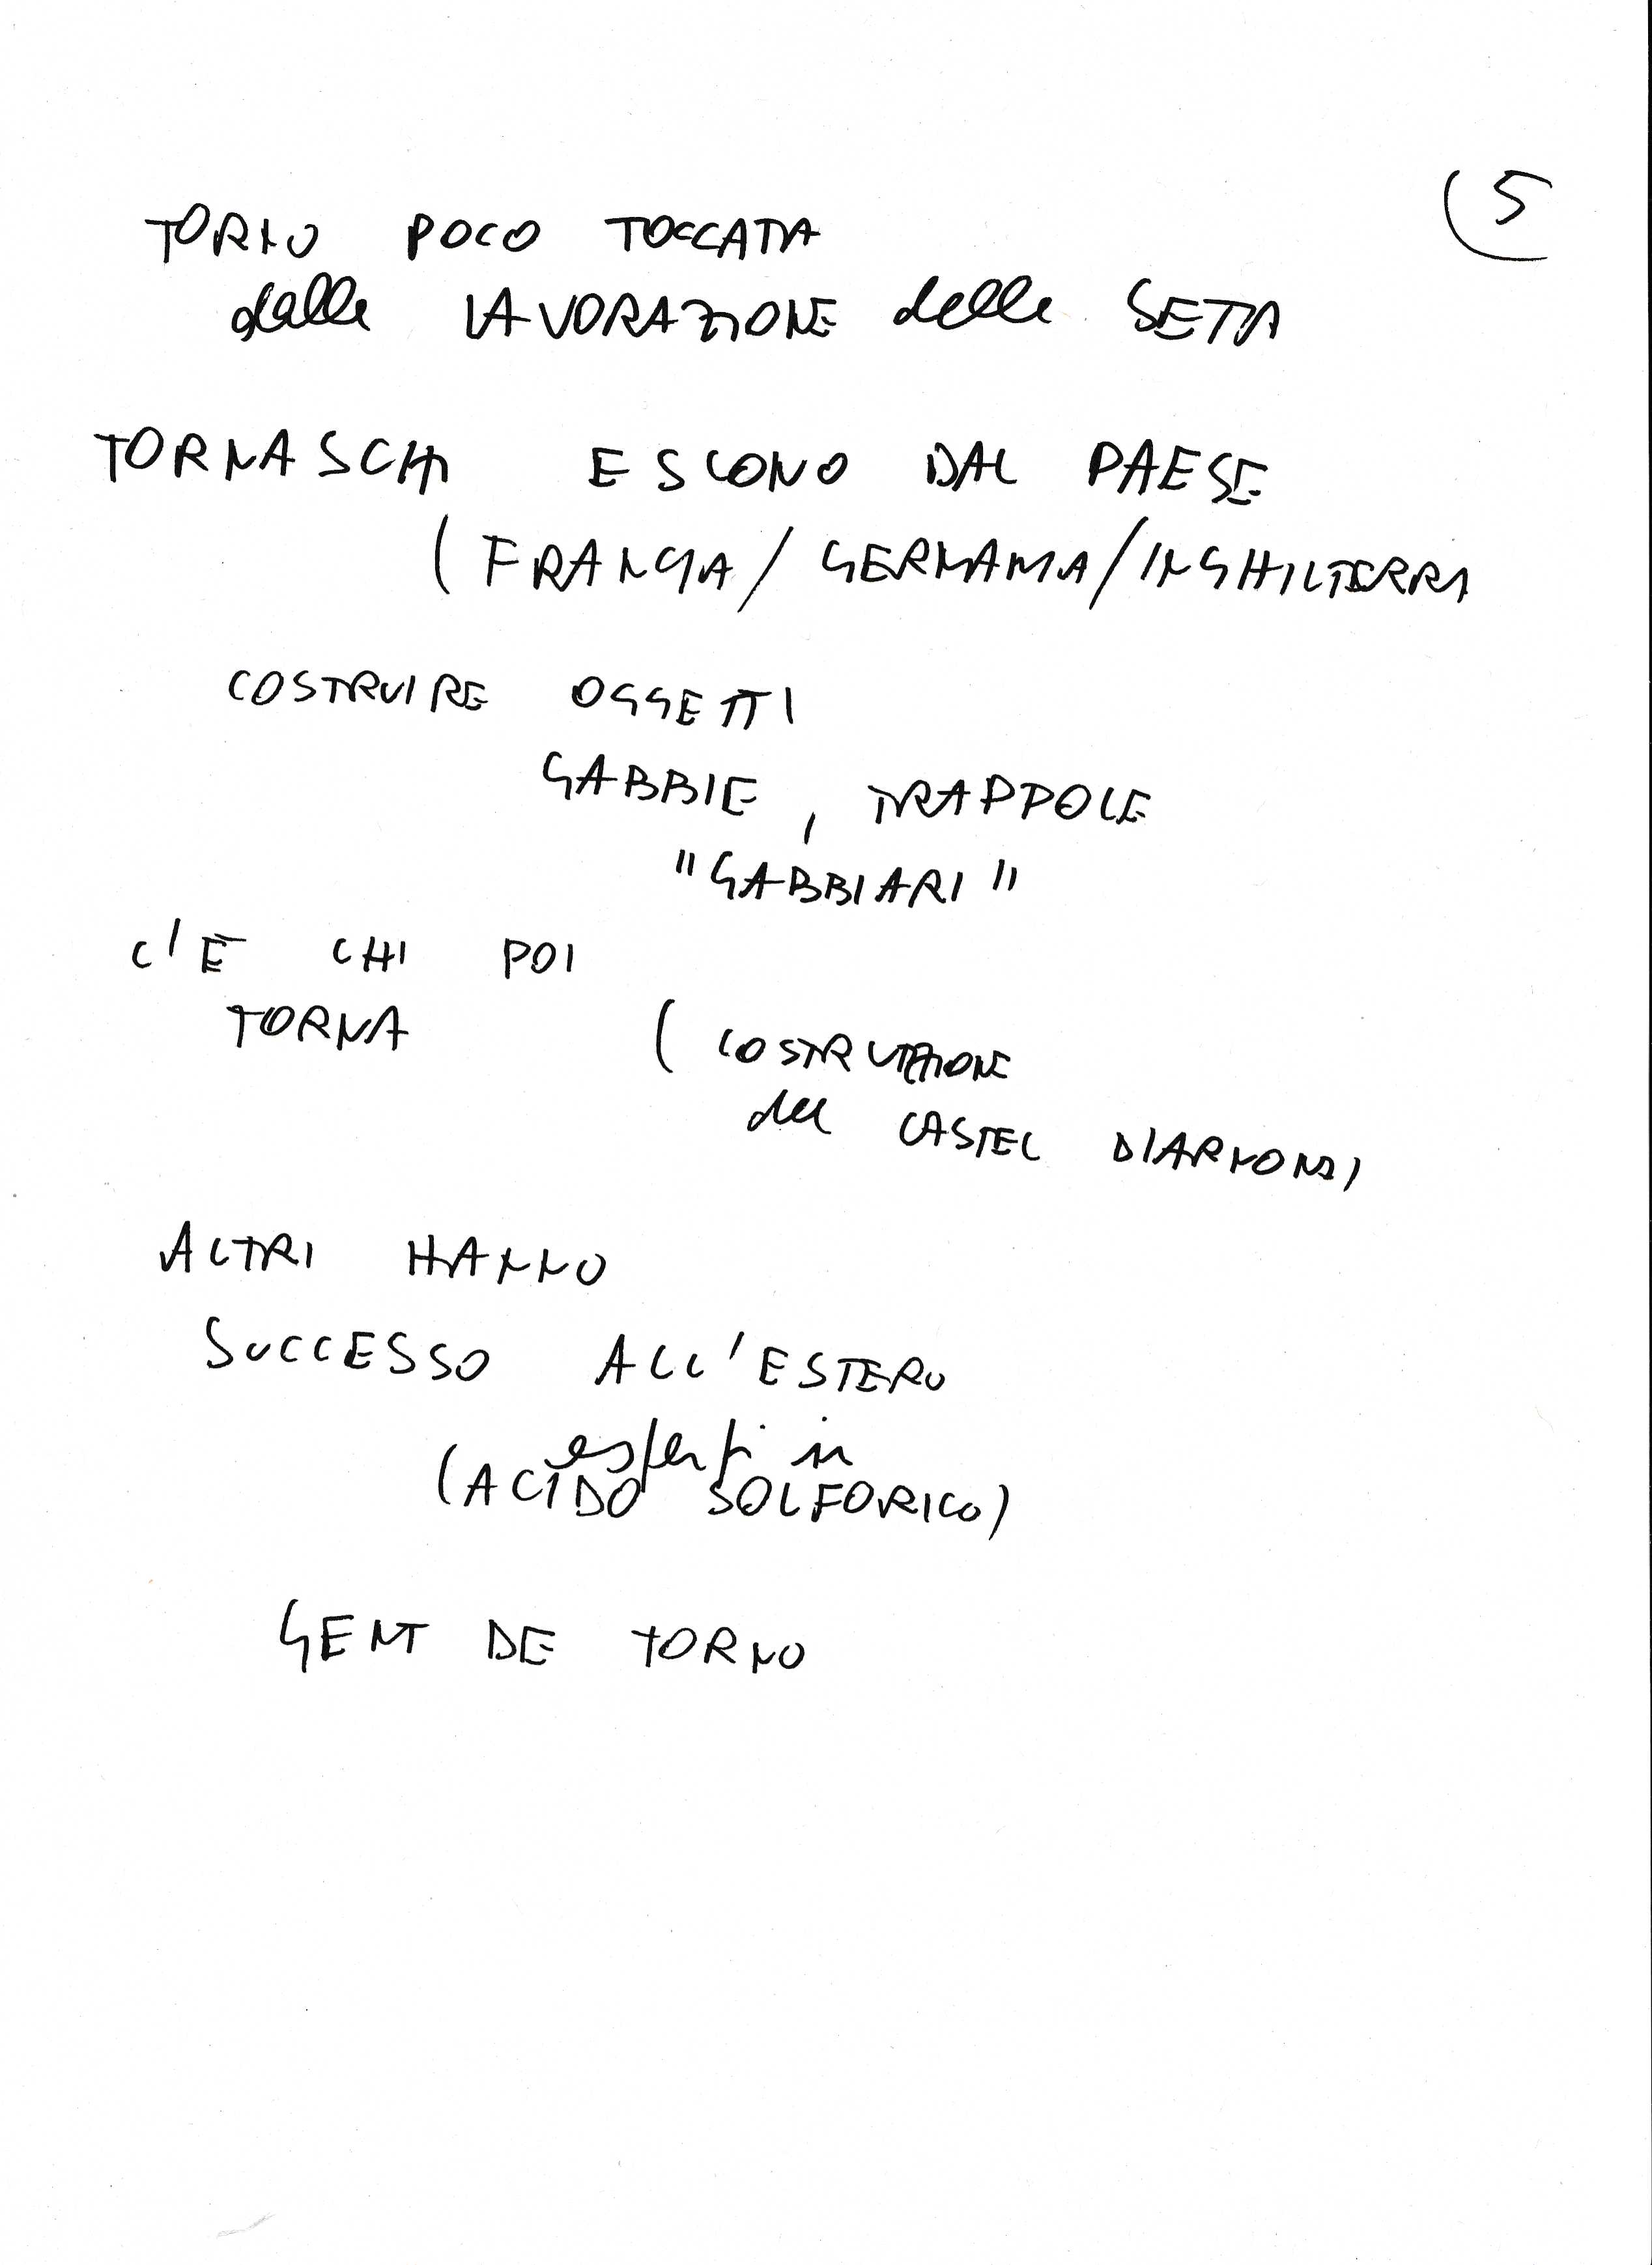 5
TORNO POCO TOCCATA
dalla LAVORAZIONE della SETA
TORNASCHI ESCONO DAL PAESE
(FRANCIA/GERMANIA/INGHILTERRA
COSTRUIRE OGGETTI
GABBIE, TRAPPOLE
"GABBIARI"
C'È CHI POI
TORNA (COSTRUZIONE
del CASTEL
ALTRI HANNO
SUCCESSO ALL'ESTERO
esperti in
(ACIDO SOLFORICO)
GENT DE TORNO